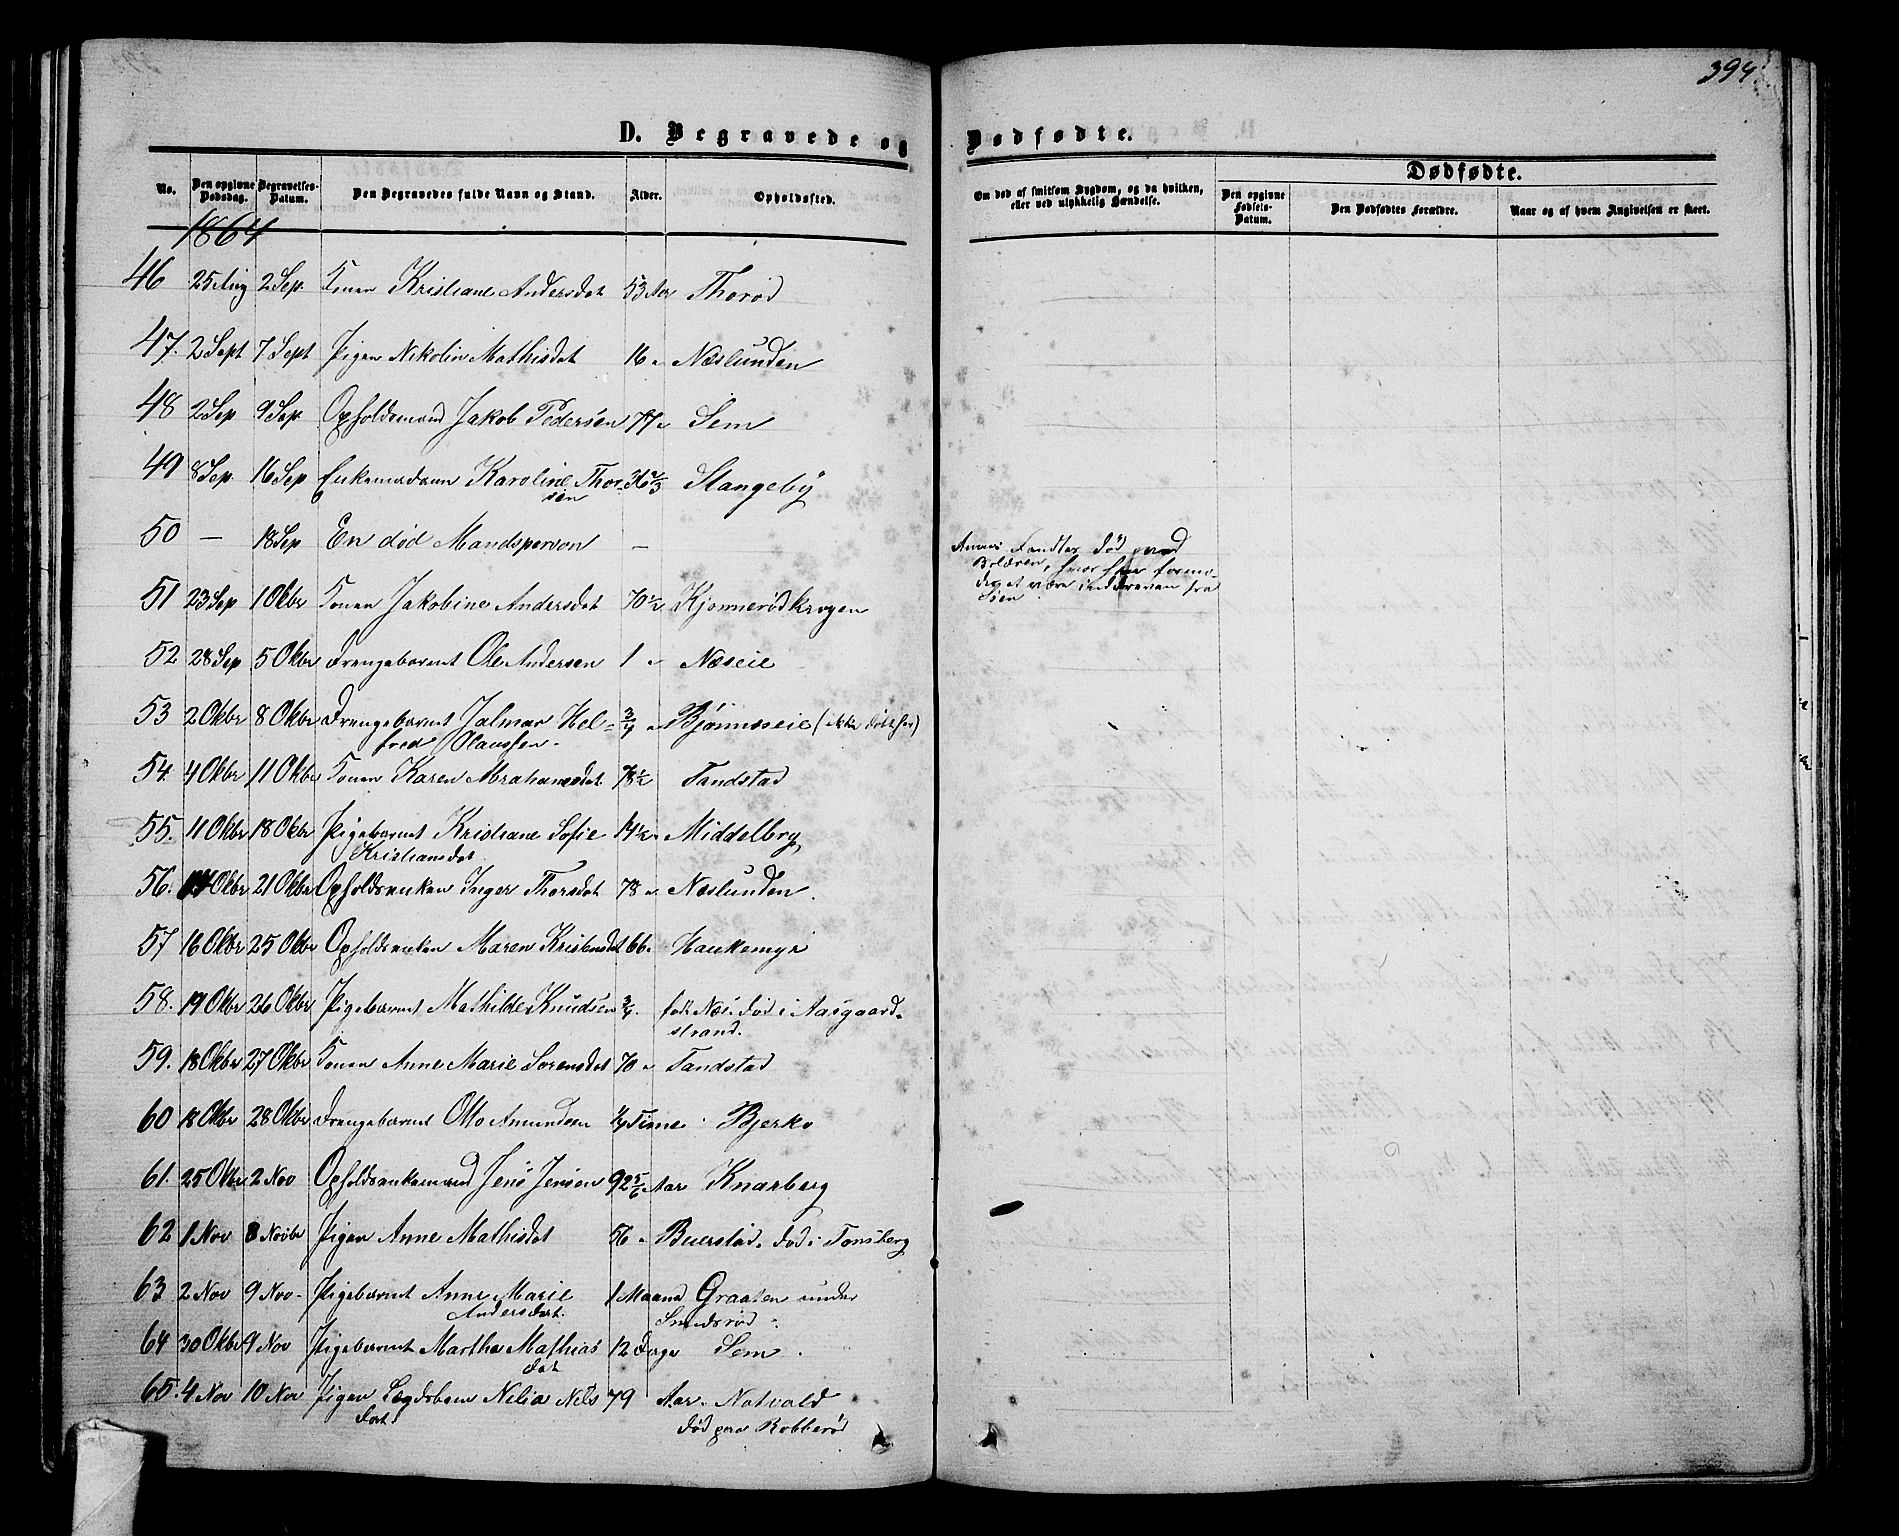 394.
D. Begravede og Dødfødte.
Dødfødte.
No. Den opgivne Dødsdag. Begravelses-Datum. Den Begravedes fulde Navn og Stand. Alder. Opholdssted. Om død af smitsom Sygdom, og da hvilken, eller ved ulykkelig Hændelse. Den opgivne Fødsels-Datum. Den Dødfødtes Forældre. Naar og af hvem Angivelsen er skeet.
1864
46 25 Aug 2 Sep. Konen Kristiane Andersdat 53 Aar Thorød
47. 2 Sept 7 Sept Pigen Nikolin Mathisdat 16 " Næslunden
48 2 Sep 9 Sep. Opholdsmand Jakob Pedersen 77 " Sem
49 8 Sep. 16 Sep Enkemadam Karoline Thor-
sen 36 2/3 Stangeby
50 — 18 Sep En død Mandsperson —
Annes Fandtes død ved
Bolæren, hvor han formo-
des at være inddreven fra
Søen
51 23 Sep 1 Okbr Konen Jakobine Andersdat 70 1/2 Kjønnerødkrogen
52 28 Sep 5 Okbr Drengebarnet Ole Andersen 1 " Næseie
53 2 Okbr 8 Okbr Drengebarnet Jalmar Hel-
fred Olaussen. 3/4 " Bjønnseie (ikke døbt her)
54. 4 Okbr 11 Okbr Konen Karen Abrahamsdat 78 1/2 Tandstad
55. 11 Okbr 18 Okbr Pigebarnet Kristiane Sofie 14 1/2 " Middelbrg
Kristiansdat
56. 14 Okbr 21 Okbr Opholdsenken Inger Thorsdat 78 " Næslunden.
57 16 Okbr 25 Okbr Opholdsenken Maren Kristensdat 66. Haukemyr
58. 19 Okbr 26 Okbr Pigebarnet Mathilde Knudsen 3/4. født Næs. Død i Aasgaard-
strand.
59. 18 Okbr 27 Okbr Konen Anne Marie Sorensdat 70 " Tandstad
60 18 Okbr 28 Okbr Drengebarnet Otto Amundsen 1/4 Time Bjerkø
61. 25 Okbr 2 Nov Opholdsenkemand Jens Jensen 92 5/6 Aar Knarberg
62 1 Nov 8 Novbr Pigen Anne Mathisdat 56 " Buerstad. Død i Tonsberg
63 2 Nov 9 Nov- Pigebarnet Anne Marie
Andersdat. 1 Maaned Graaten under
Smidsrød
64 30 Okbr 9 Nov Pigebarnet Martha Mathias
dat 12 Dage Sem.
65. 4 Nov 10 Nov Pigen Lægdsbem Nelia Nils
dat 79 Aar. Notvald
død paa Robberød